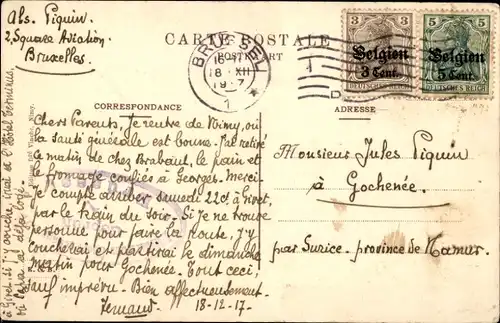 Abs. Piquin
2, Square Aviation
Bruxelles.
CARTE POSTALE
POSTKAART
BRÜSSEL
18 XII
1
3 3
Belgien
3 Cent.
DEUTSCHES REICH
5 5
Belgien
5 Cent.
DEUTSCHES REICH
CORRESPONDANCE
ADRESSE
Chers Parents, Je rentre de Nimy, où
la santé générale est bonne. J'ai retiré
le matin de chez Brabant, le pain et
le fromage confiés à Georges. Merci
Je compte arriver samedi 22 ct à Givet,
par le train du soir. Si je ne trouve
personne pour faire la route, j'y
coucherai et partirai le dimanche
matin pour Gochenée. Tout ceci,
sauf imprévu. Bien affectueusement.
Fernand. 18-12-17.
Monsieur Jules Piquin
à Gochenée.
par Surice - province de Namur.
à Givet si j'y couche irai à l'Hôtel Terminus,